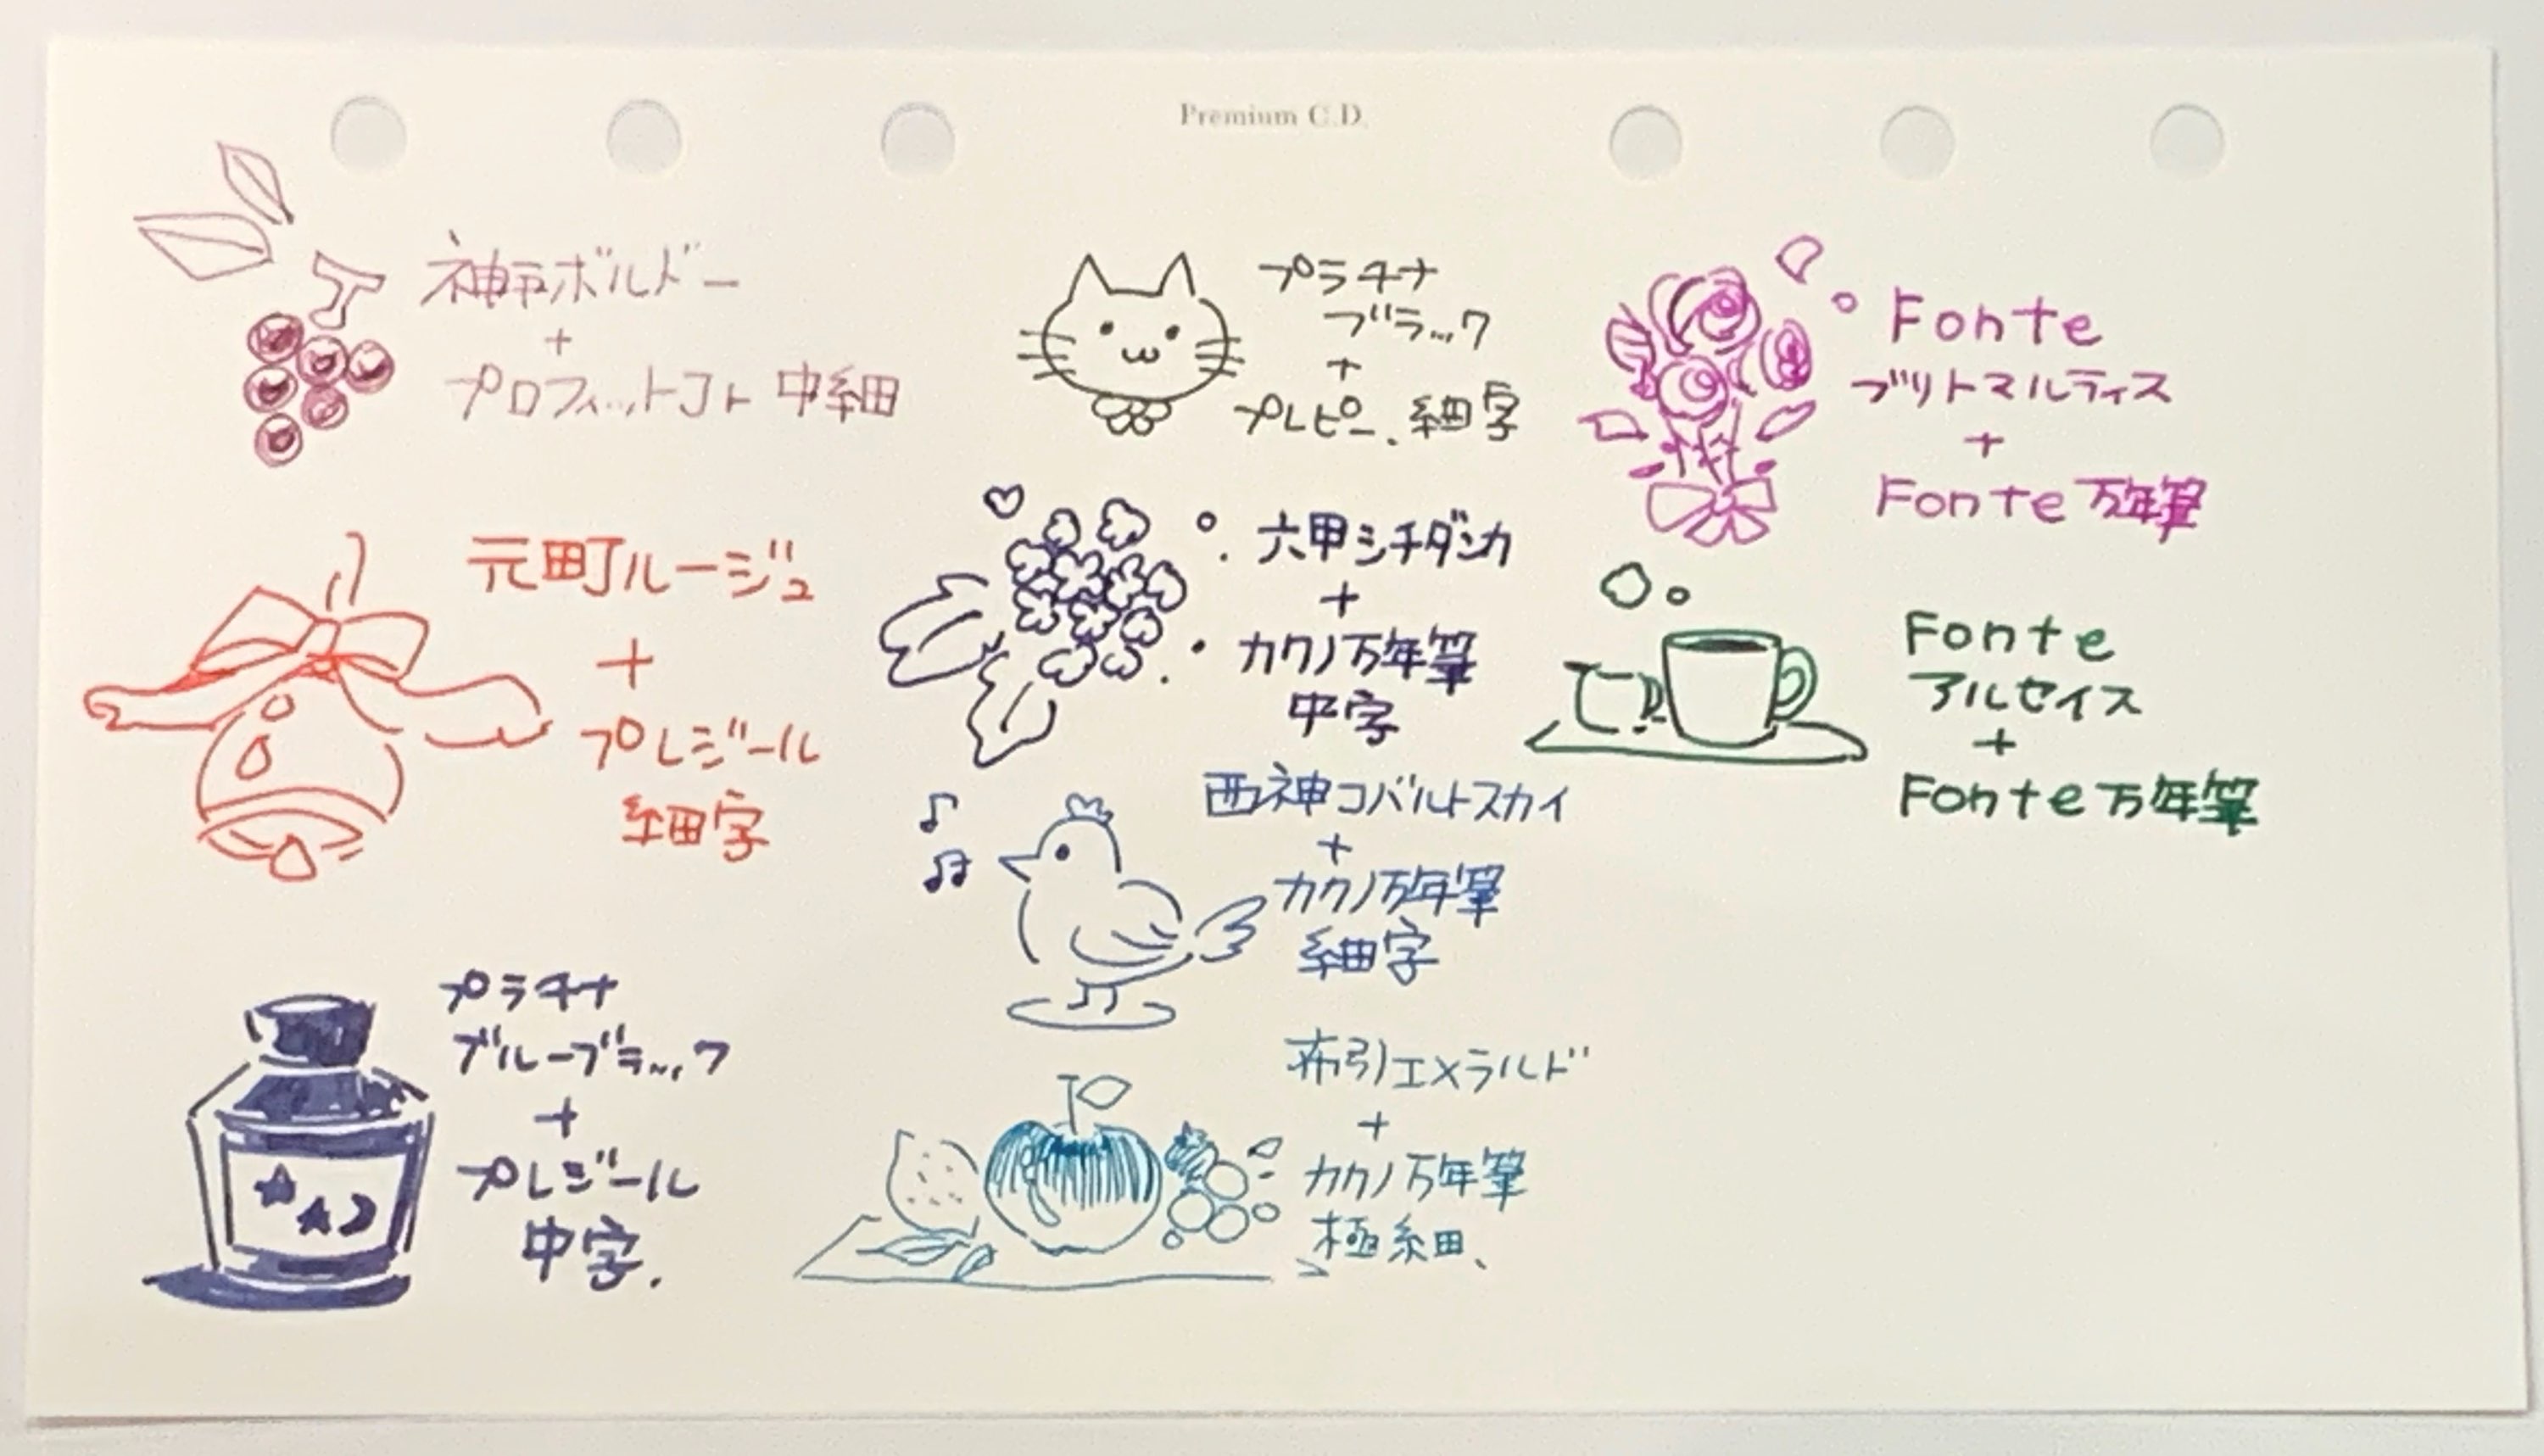 Premium C.D.
神戸ボルドー
+
プロフィットJr 中細
元町ルージュ
+
プレジール
細字
プラチナ
ブルーブラック
+
プレジール
中字.
プラチナ
ブラック
+
プレピー、細字
六甲シチダンカ
+
カクノ万年筆
中字
西神コバルトスカイ
+
カクノ万年筆
細字
布引エメラルド
+
カクノ万年筆
極細、
Fonte
ブリトマルティス
+
Fonte万年筆
Fonte
アルセイス
+
Fonte万年筆